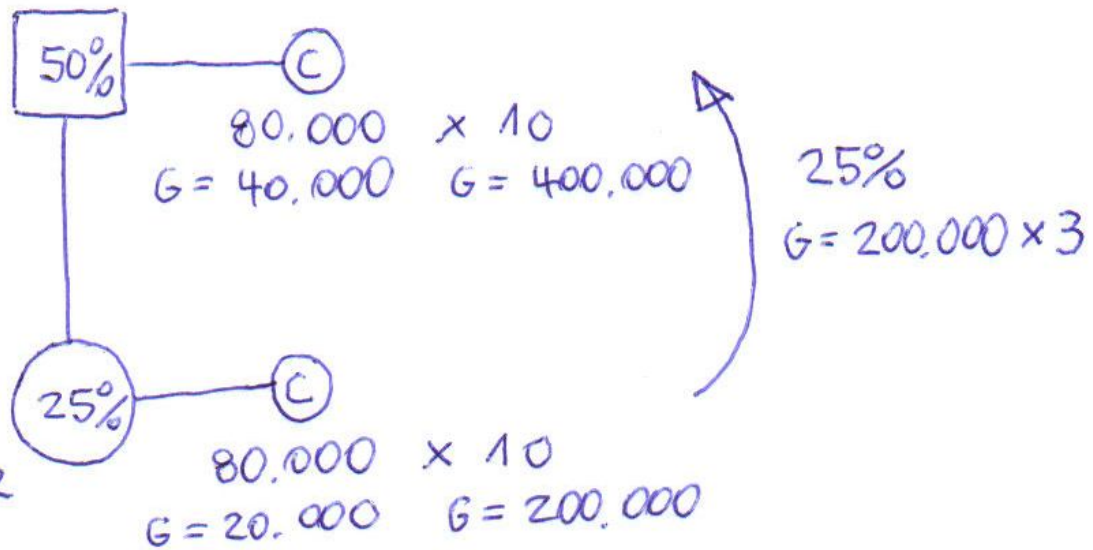 50% C
80.000 x 10
G = 40.000 G = 400.000
25%
G = 200.000 x 3
25% C
80.000 x 10
G = 20.000 G = 200.000